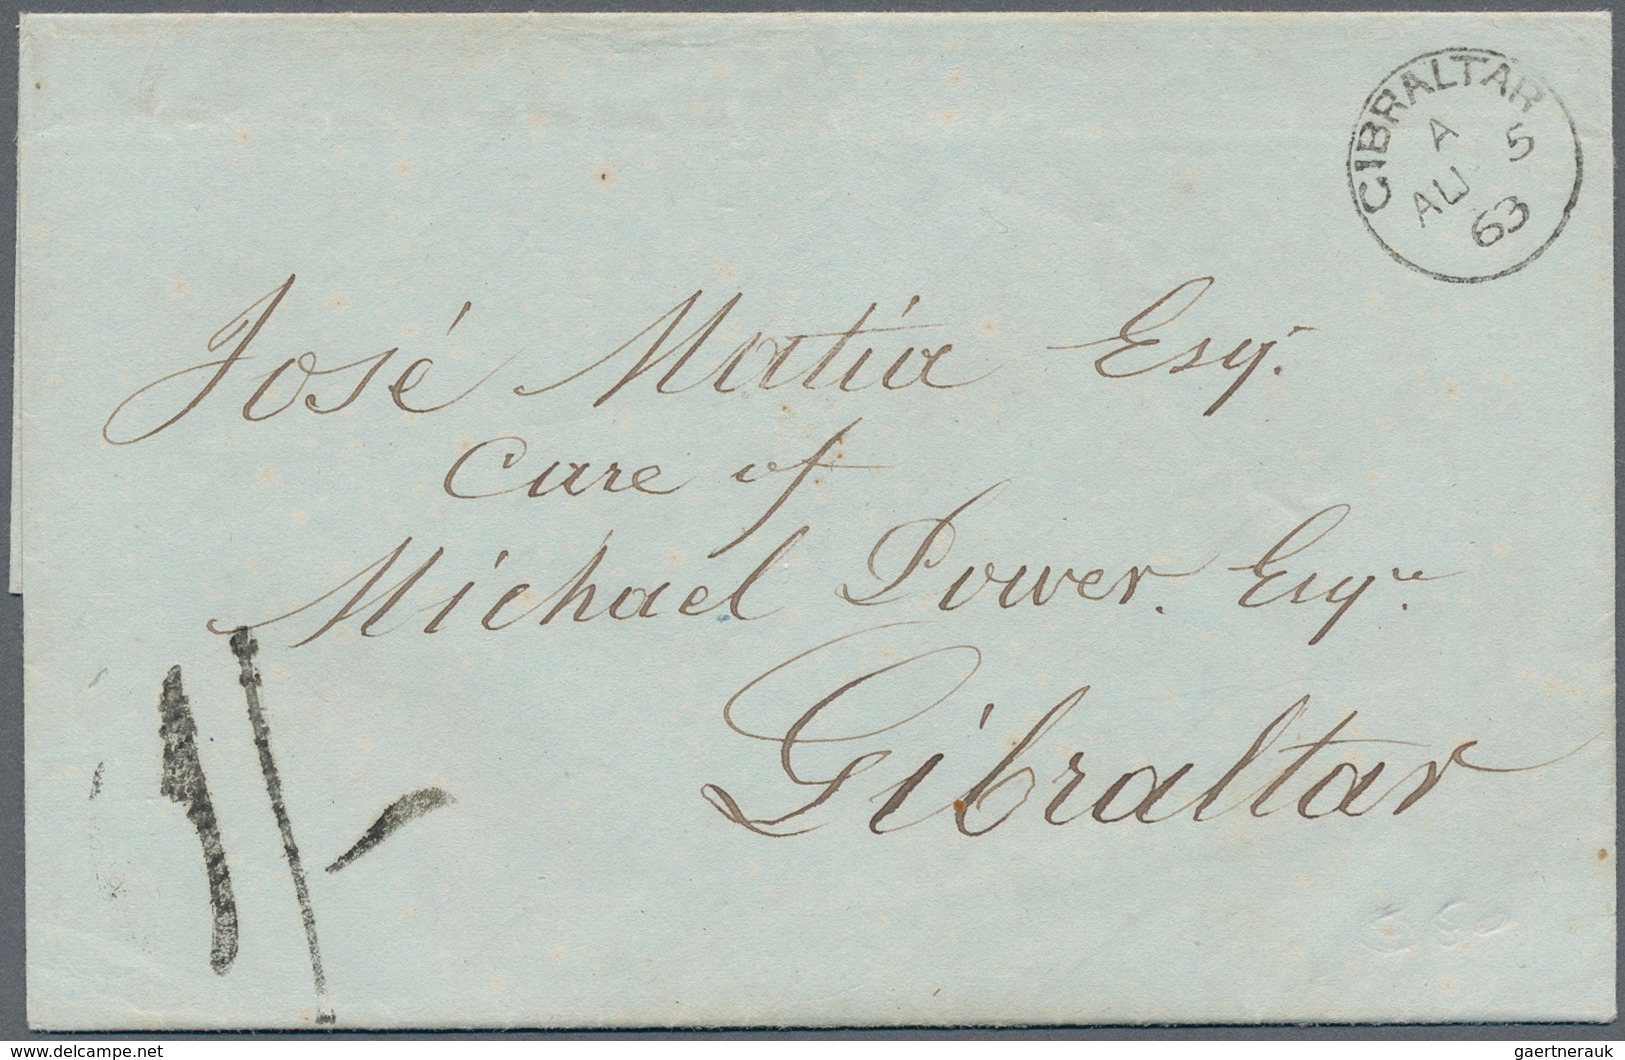 GIBRALTAR
A
AU 5
63
José Matia Esqr.
Care of
Michael Power. Esqre.
Gibraltar
1/-
© Delcampe.net
gaertnerauk